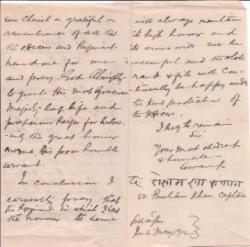 ever Cherish a grateful re-
membrance of all that
the officers and Regiment
have done for me
and pray God Almighty
to grant His Most Gracious
Majesty long life and
prosperous Reign for
only this great honor
on me His poor humble
servant.
In conclusion I
earnestly pray that
the Regiment in which I had
the honour to serve
will always maintain
its high honour and
its arms will ever be
successful and the whole
rank & file will con-
tinually be happy under
the kind protection of
the Officers.
I beg to remain
Sir
Your most obedient
& humble
servant
Khan Captain
May 1912